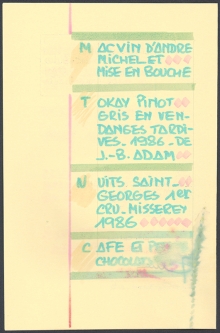 MACVIN D'ANDRE
MICHEL ET
MISE EN BOUCHE
TOKAY PINOT
GRIS EN VEN-
DANGES TARDI-
VES - 1986 - DE
J.-B. ADAM
NUITS SAINT-
GEORGES 1er
CRU - MISSEREY
1986
CAFE ET
CHOCOLATS